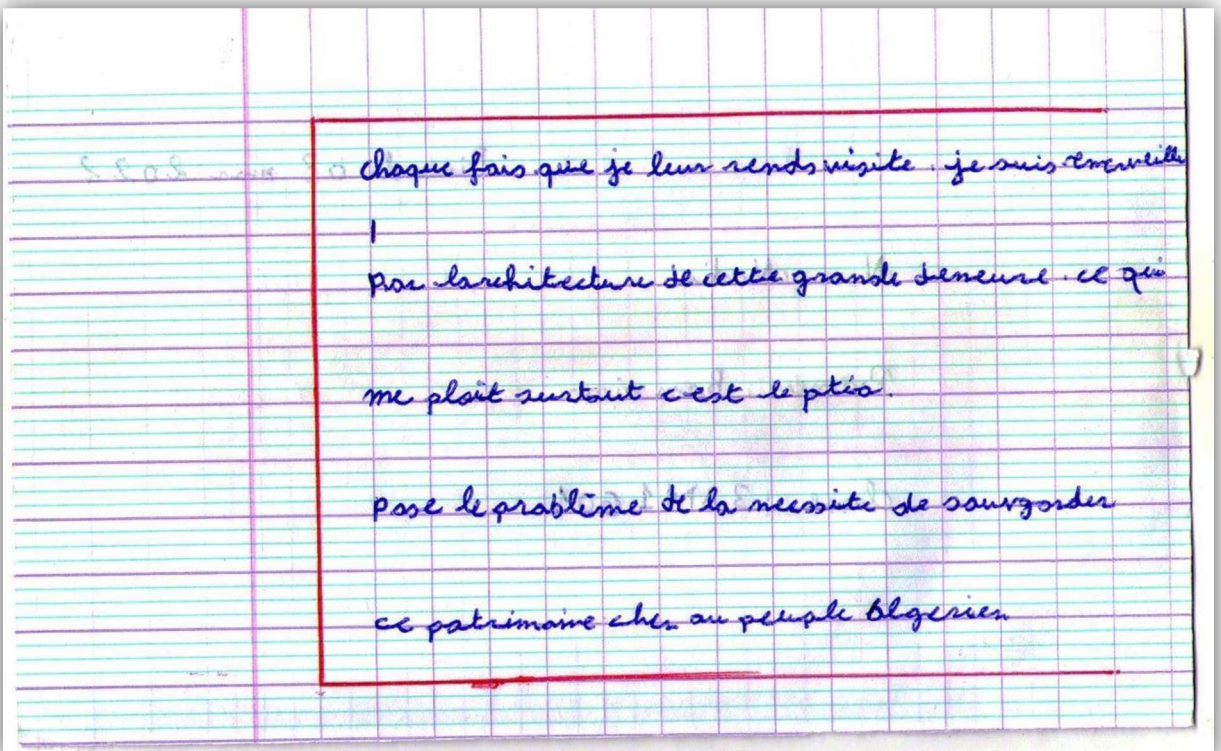 chaque fais que je leur rends visite. je suis emerveille
par larchitecture de cette grande demeure. ce qui
me plait surtout c est le ptio.
pose le problème de la necssite de sauvgarder
ce patrimaine cher au peuple Algerien